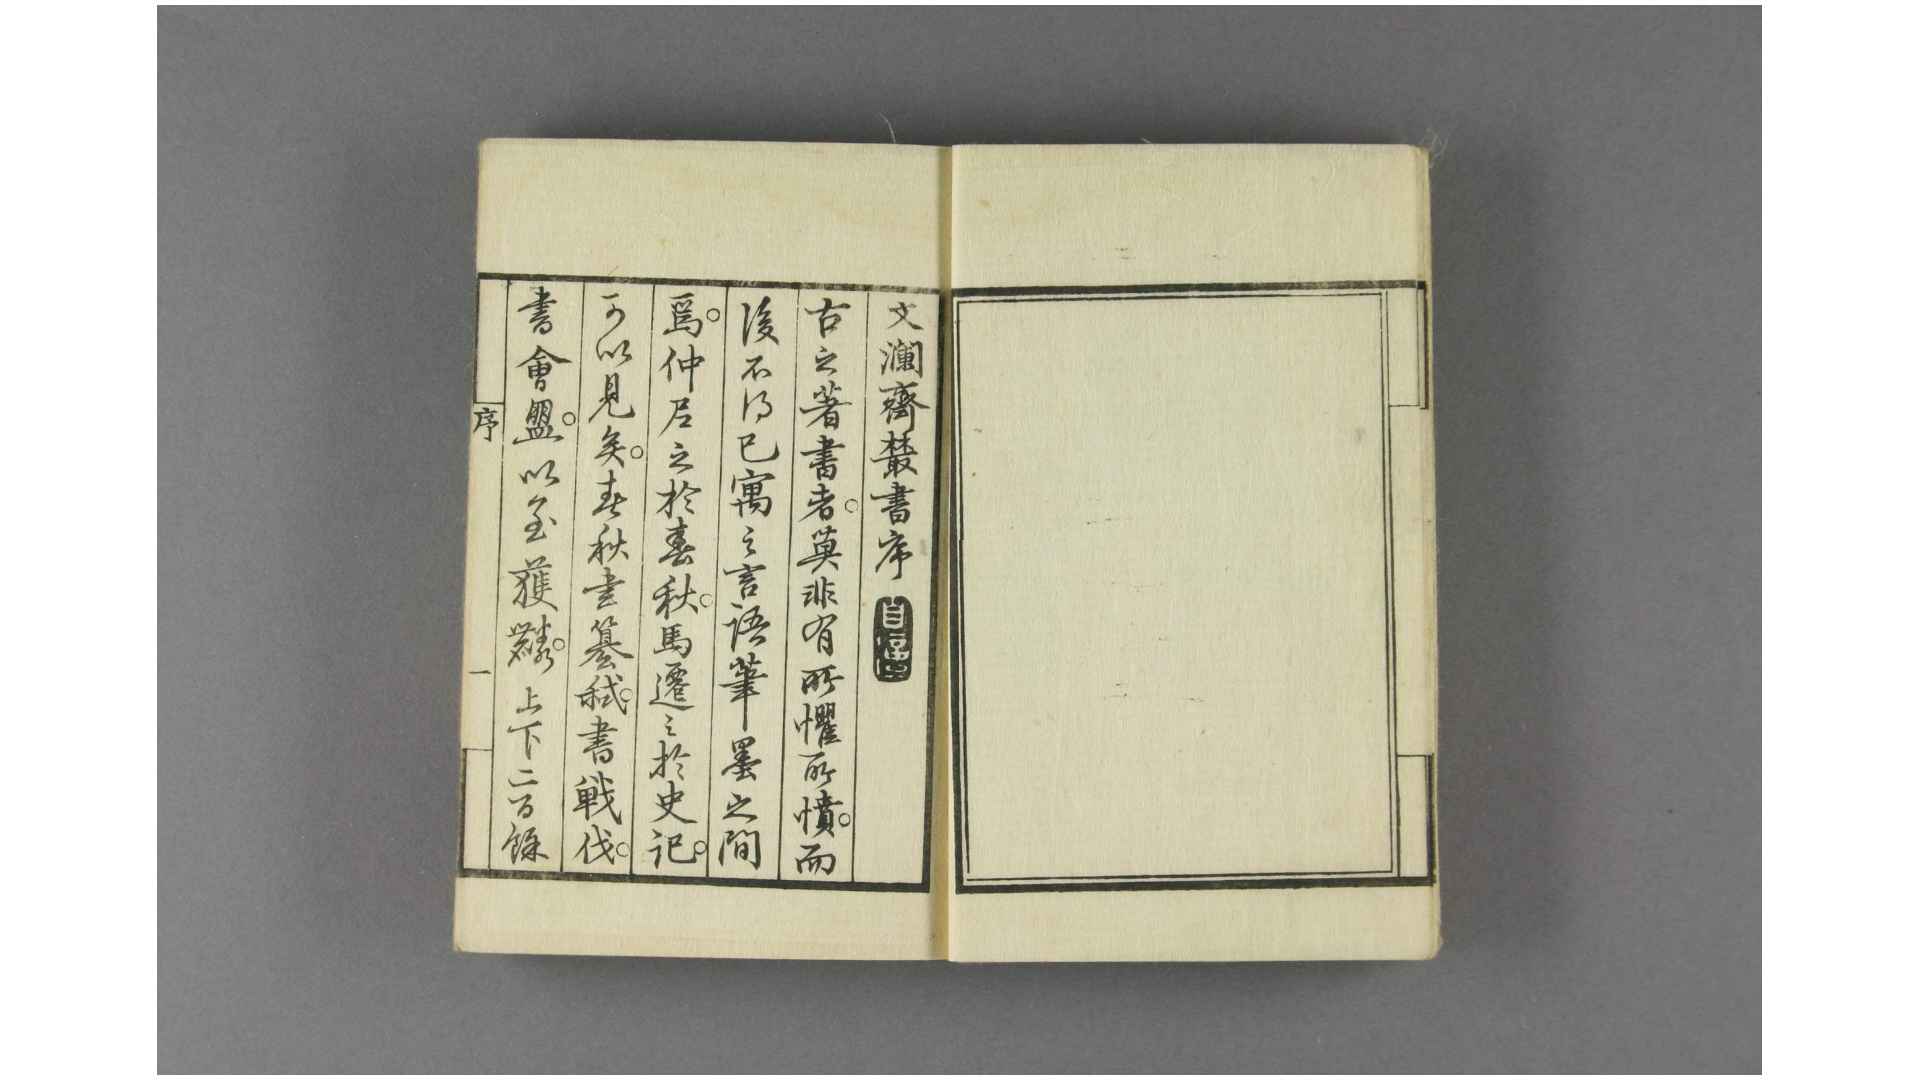 文瀾齋叢書序
古之著書者。莫非有所懼所憤。而
後不得已寓之言語筆墨之間
爲。仲尼之於春秋。馬遷之於史記。
可以見矣。春秋書篡弒。書戰伐。
書會盟。以至獲麟。上下二百餘
序
一